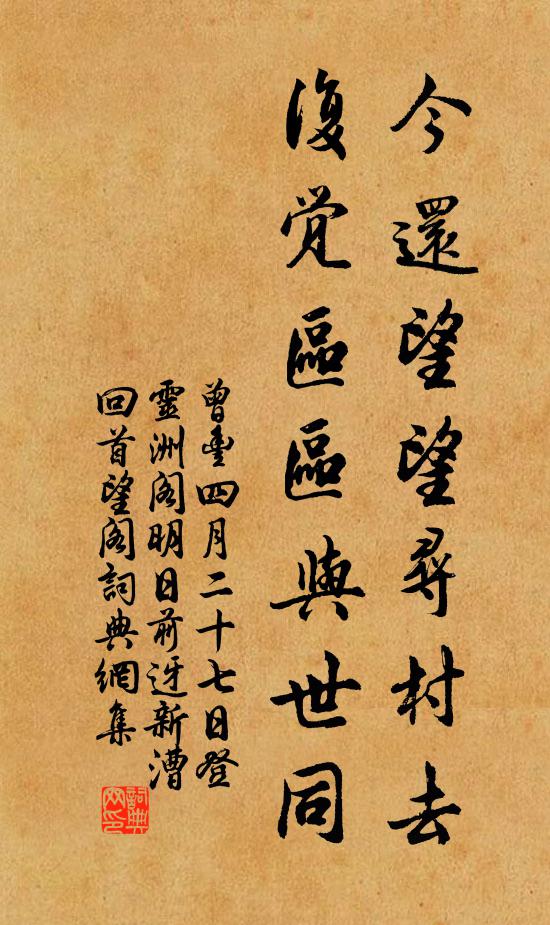 今還望望尋村去
復覚區區與世同
曾豊四月二十七日登
靈洲阁明日前迓新漕
回首望阁詞典網集
詞典网印